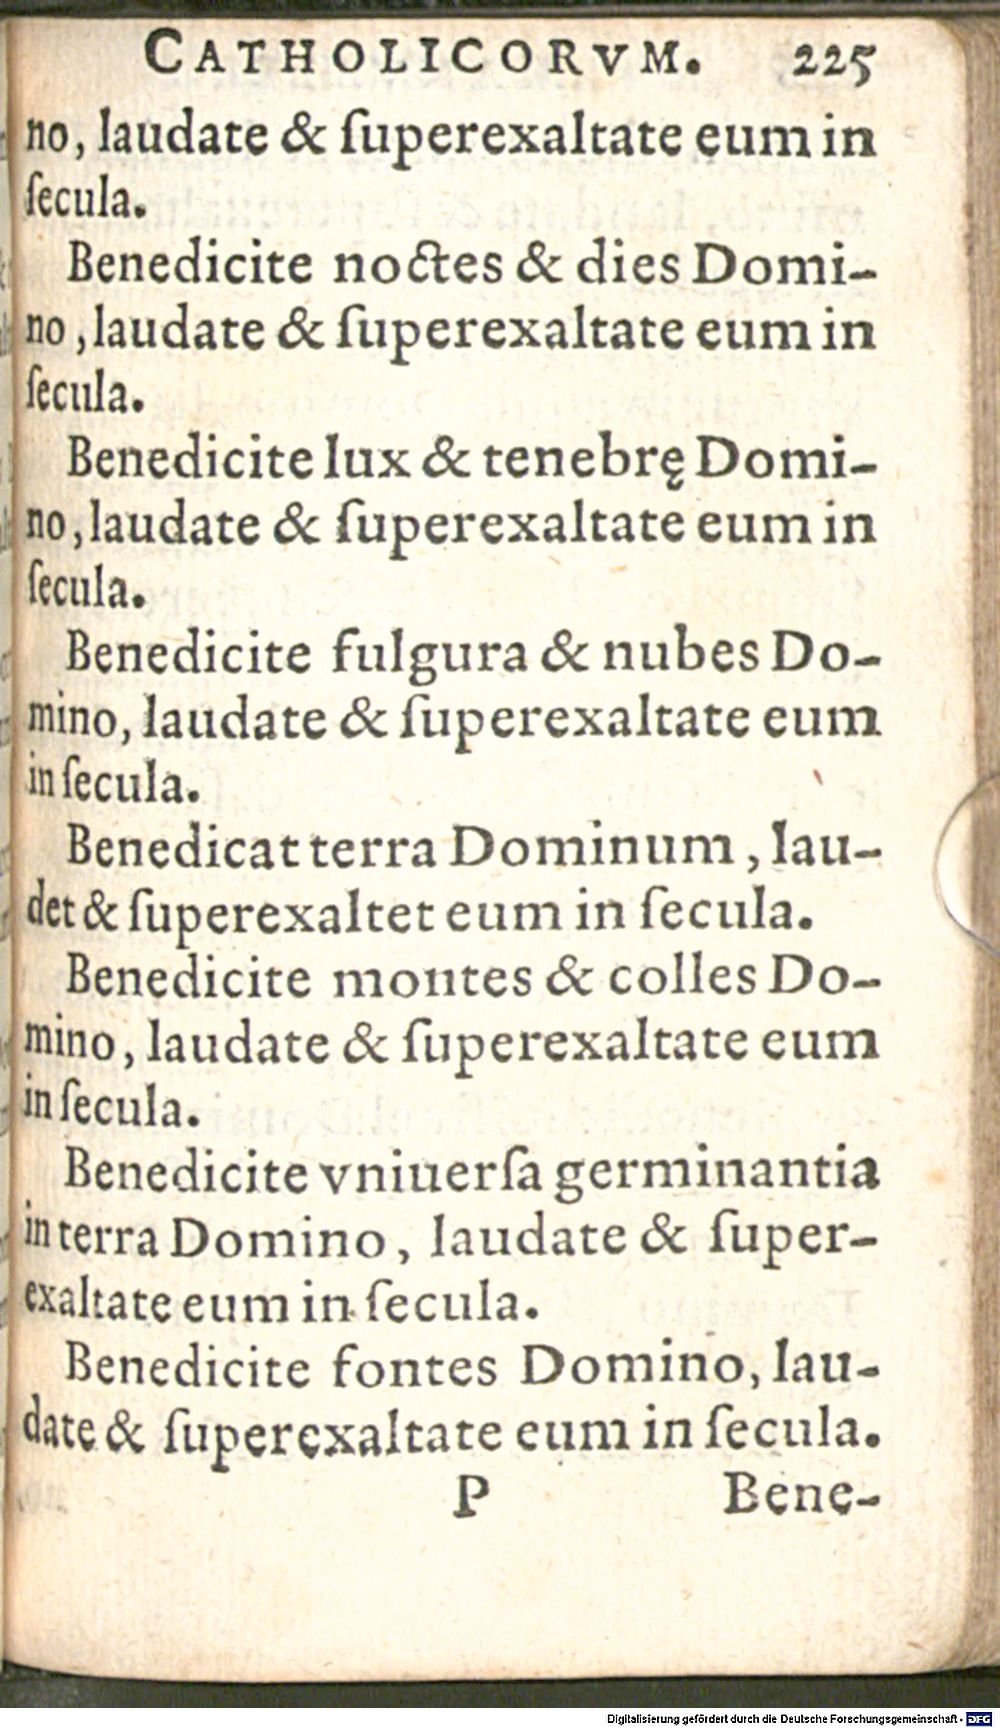 CATHOLICORVM. 225
no, laudate & ſuperexaltate eum in
ſecula.
Benedicite noctes & dies Domi-
no, laudate & ſuperexaltate eum in
ſecula.
Benedicite lux & tenebrę Domi-
no, laudate & ſuperexaltate eum in
ſecula.
Benedicite fulgura & nubes Do-
mino, laudate & ſuperexaltate eum
in ſecula.
Benedicat terra Dominum, lau-
det & ſuperexaltet eum in ſecula.
Benedicite montes & colles Do-
mino, laudate & ſuperexaltate eum
in ſecula.
Benedicite vniuerſa germinantia
in terra Domino, laudate & ſuper-
exaltate eum in ſecula.
Benedicite fontes Domino, lau-
date & ſuperexaltate eum in ſecula.
P Bene-
Digitalisierung gefördert durch die Deutsche Forschungsgemeinschaft - DFG